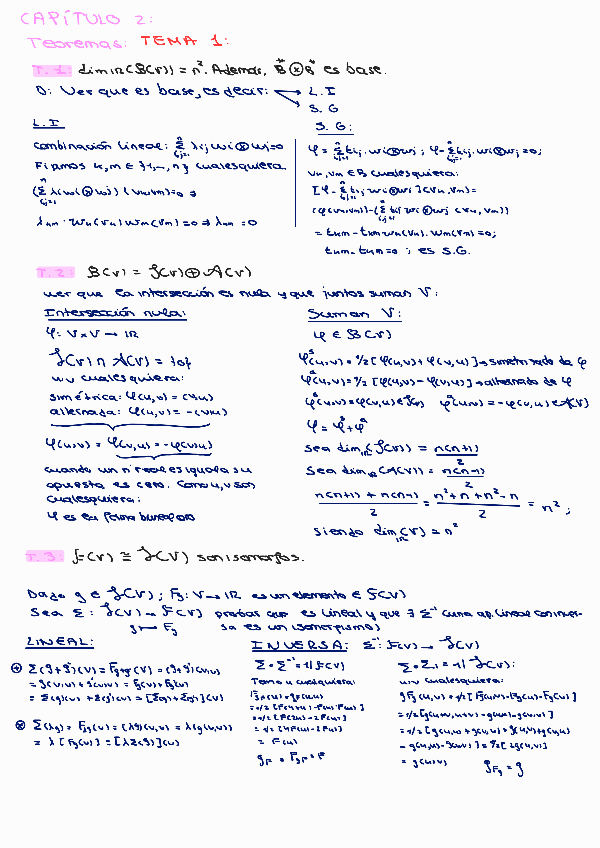 CAPÍTULO 2:
Teoremas: TEMA 1:
T.1: dim_ℝ(B(V)) = n². Además, B*⊗B* es base.
D: Ver que es base, es decir: L.I
S.G
L.I
Combinación lineal: Σ λij wi⊗wj=0
Fijamos k,m ∈ {1,...,n} cualesquiera.
(Σ λij wi⊗wj)(vk,vm)=0 ⇒
λkm · wk(vk) wm(vm)=0 ⇒ λkm =0
S.G:
φ = Σ tij · wi⊗wj ; φ - Σ tij · wi⊗wj =0;
vk, vm ∈ B cualesquiera:
[φ - Σ tij wi⊗wj](vk,vm)=
(φ(vk,vm)) - (Σ tij wi⊗wj (vk,vm))
= tkm - tkm wk(vk) · wm(vm) =0;
tkm - tkm =0 ; es S.G.
T.2: B(V) = S(V)⊕A(V)
Ver que la intersección es nula y que juntos suman V:
Intersección nula:
φ: V×V → ℝ
S(V) ∩ A(V) = {0}
u,v cualesquiera:
simétrica: φ(u,v) = (v,u)
alternada: φ(u,v) = -(v,u)
φ(u,v) = φ(v,u) = -φ(v,u)
cuando un nº real es igual a su
opuesta es cero. Como u,v son
cualesquiera:
φ es la forma bilineal 0
Suman V:
φ ∈ B(V)
φˢ(u,v) = 1/2 [φ(u,v) + φ(v,u)] → simetrizada de φ
φᵃ(u,v) = 1/2 [φ(u,v) - φ(v,u)] → alternada de φ
φˢ(u,v)=φˢ(v,u) ∈ S(V) φᵃ(u,v) = -φᵃ(v,u) ∈ A(V)
φ = φˢ+φᵃ
Sea dim_ℝ(S(V)) = n(n+1)/2
Sea dim_ℝ(A(V)) = n(n-1)/2
n(n+1) + n(n-1) / 2 = n²+n + n²-n / 2 = n² ;
Siendo dim_ℝ(V) = n²
T.3: F(V) ≅ S(V) son isomorfos.
Dado g ∈ S(V) ; Fg: V → ℝ es un elemento ∈ F(V)
Sea Σ : S(V) → F(V) probar que es lineal y que ∃ Σ⁻¹ (una ap. lineal con inver-
g ↦ Fg sa es un isomorfismo)
LINEAL:
⊕ Σ(g+g')(v) = Fg+g'(v) = (g+g')(v,v)
= g(v,v) + g'(v,v) = Fg(v) + Fg'(v)
= Σ(g)(v) + Σ(g')(v) = [Σ(g)+Σ(g')](v)
⊗ Σ(λg) = Fλg(v) = (λg)(v,v) = λ(g(v,v))
= λ[Fg(v)] = [λΣ(g)](v)
INVERSA: Σ⁻¹: F(V) → S(V)
Σ∘Σ⁻¹ = 1/F(V)
Tomo u cualquiera:
= 1/2 [F(2u) - 2F(u)]
= 1/2 [4F(u) - 2F(u)]
= F(u)
Σ⁻¹∘Σ = 1/S(V):
u,v cualesquiera:
gFg(u,v) = 1/2 [Fg(u+v) - Fg(u) - Fg(v)]
= 1/2 [g(u+v,u+v) - g(u,u) - g(v,v)]
= 1/2 [g(u,u) + g(u,v) + g(v,u) + g(v,v)
- g(u,u) - g(v,v)] = 1/2 [2g(u,v)]
= g(u,v) gFg = g